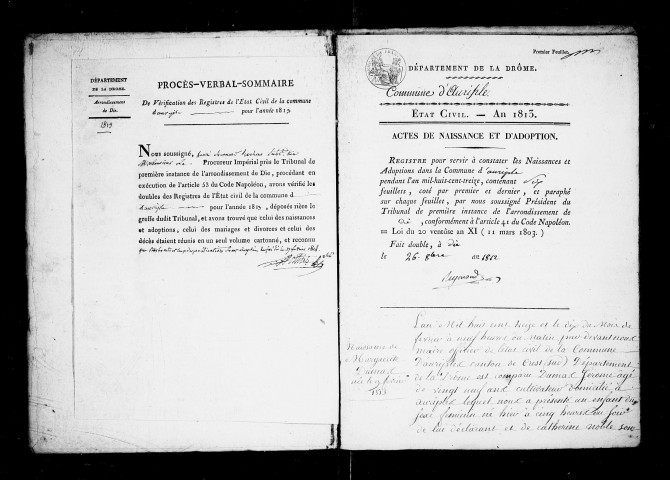 DÉPARTEMENT
DE LA DRÔME.
Arrondissement
de Die.
1813
PROCÈS-VERBAL-SOMMAIRE
De Vérification des Registres de l'Etat Civil de la commune
pour l'année 1813.
Nous soussigné,
Procureur Impérial près le Tribunal de
première instance de l'arrondissement de Die, procédant en
exécution de l'article 53 du Code Napoléon, avons vérifié les
doubles des Registres de l'État civil de la commune d
pour l'année 1813, déposés rière le
greffe dudit Tribunal, et avons trouvé que celui des naissances
et adoptions, celui des mariages et divorces et celui des
décès étaient réunis en un seul volume cartonné, et reconnu
Premier Feuillet
DÉPARTEMENT DE LA DRÔME.
Commune d'Auriple
ÉTAT CIVIL. — AN 1813.
ACTES DE NAISSANCE ET D'ADOPTION.
REGISTRE pour servir à constater les Naissances et
Adoptions dans la Commune d'auriple
pendant l'an mil-huit-cent-treize, contenant six
feuillets, coté par premier et dernier, et paraphé
sur chaque feuillet, par nous soussigné Président du
Tribunal de première instance de l'arrondissement de
Die, conformément à l'article 41 du Code Napoléon.
= Loi du 20 ventôse an XI ( 11 mars 1803. )
Fait double, à die
le 26 9bre an 1812
Reymond
Naissance de
Marguerite
Dumas
le 9 février
1813
L'an Mil huit cent treize et le dix du Mois de
fevrier a neuf heures du Matin pardevant nous
maire officier de l'état civil de la Commune
Dauriples canton de Crest (sud) Département
de la Drôme est comparu Dumas Jerome agé
de vingt neuf ans cultivateur domicilié à
auriples lequel nous a présenté un enfant du
sexe feminin né hier à cinq heures du soir
de lui déclarant et de catherine noble son